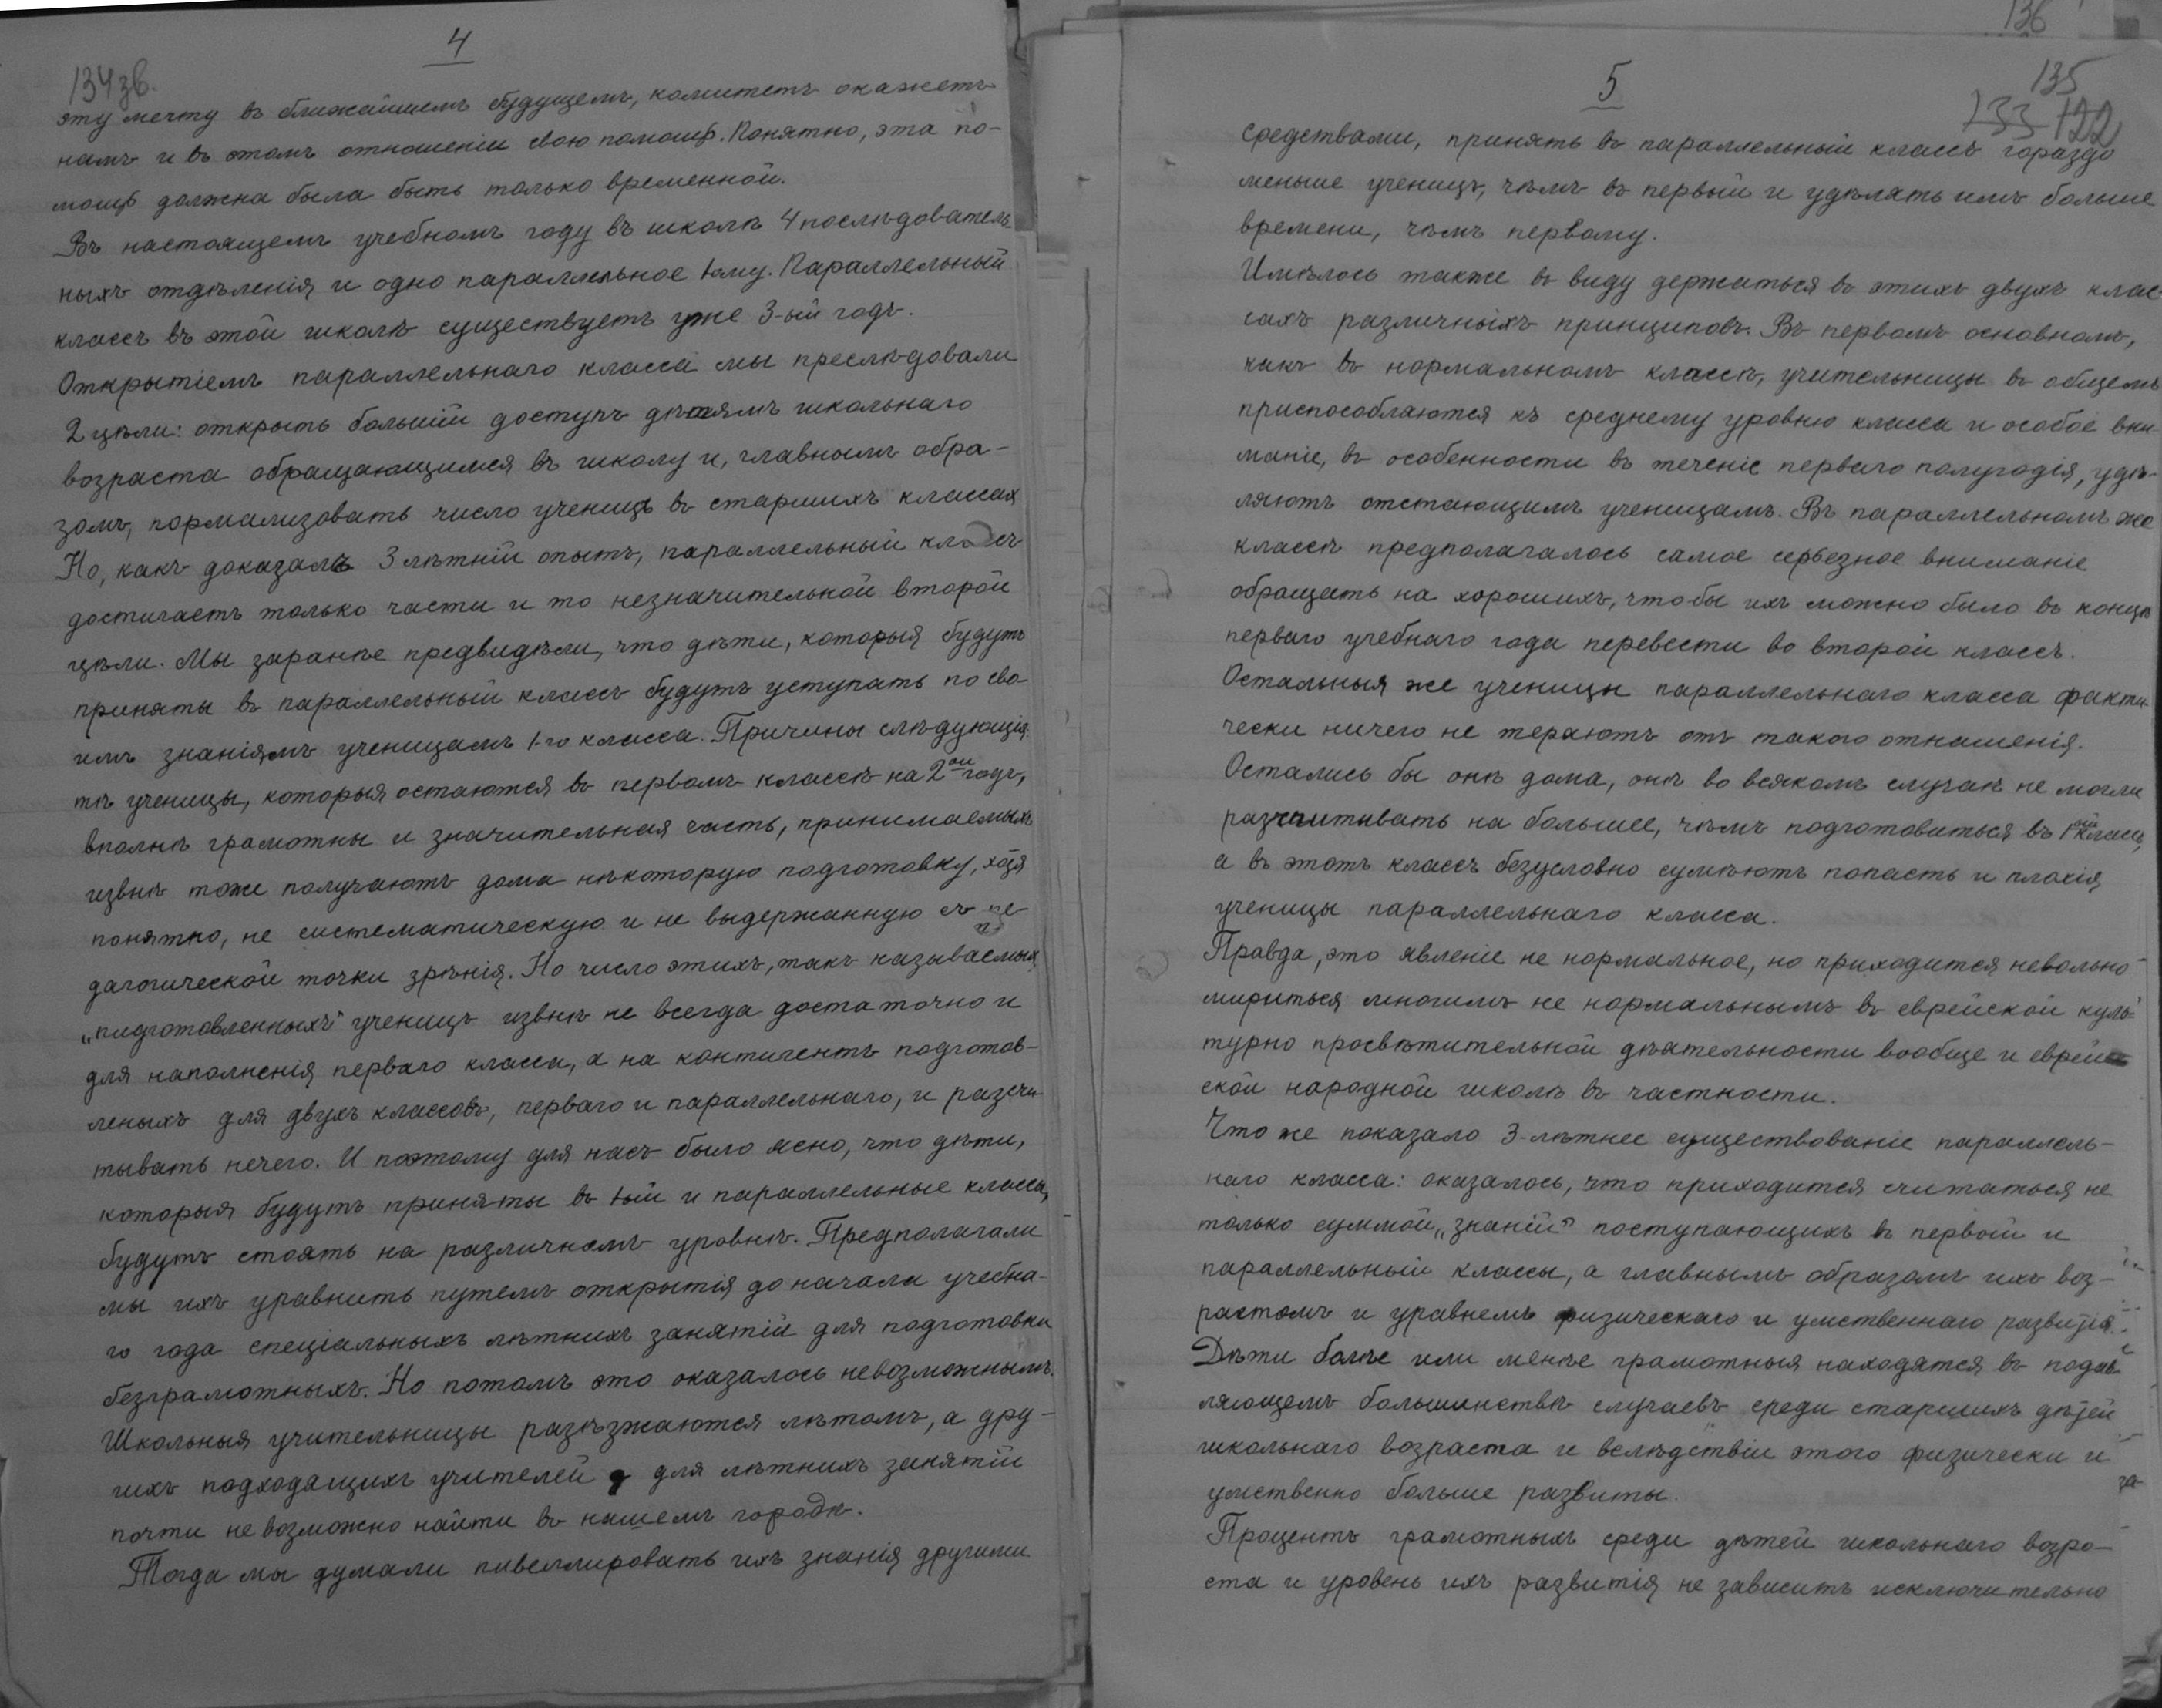 4
134зв.
эту мечту въ ближайшемъ будущемъ, комитетъ окажетъ
намъ и въ этомъ отношеніи свою помощь. Понятно, эта по-
мощь должна была быть только временной.
Въ настоящемъ учебномъ году въ школѣ 4 послѣдователь-
ныхъ отдѣленія и одно параллельное 1-ому. Параллельный
классъ въ этой школѣ существуетъ уже 3-ый годъ.
Открытіемъ параллельнаго класса мы преслѣдовали
2 цѣли: открыть большій доступъ дѣтямъ школьнаго
возраста обращающимся въ школу и, главнымъ обра-
зомъ, нормализовать число ученицъ въ старшихъ классах
Но, какъ доказалъ 3 лѣтній опытъ, параллельный классъ
достигаетъ только части и то незначительной второй
цѣли. Мы заранѣе предвидѣли, что дѣти, которыя будутъ
приняты въ параллельный классъ будутъ уступать по сво-
имъ знаніямъ ученицамъ 1-го класса. Причины слѣдующія:
тѣ ученицы, которыя остаются въ первомъ классѣ на 2ой годъ,
вполнѣ грамотны и значительная часть, принимаемыхъ
извнѣ тоже получаютъ дома нѣкоторую подготовку, хотя
понятно, не систематическую и не выдержанную съ пе-
дагогической точки зрѣнія. Но число этихъ, такъ называемых
„подготовленныхъ" ученицъ извнѣ не всегда достаточно и
для наполненія перваго класса, а на контигентъ подготов-
леныхъ для двухъ классовъ, перваго и параллельнаго, и разсчи-
тывать нечего. И поэтому для насъ было ясно, что дѣти,
которыя будутъ приняты въ 1-ый и параллельные класса,
будутъ стоять на различномъ уровнѣ. Предполагали
мы ихъ уравнить путемъ открытія до начала учебна-
го года спеціальныхъ лѣтнихъ занятій для подготовки
безграмотныхъ. Но потомъ это оказалось невозможнымъ.
Школьныя учительницы разъѣзжаются лѣтомъ, а дру-
гихъ подходящихъ учителей для лѣтнихъ занятій
почти невозможно найти въ нашемъ городѣ.
Тогда мы думали нивеллировать ихъ знанія другими
136
135
133 122
5
средствами, принять въ параллельный классъ гораздо
меньше ученицъ, чѣмъ въ первый и удѣлять имъ больше
времени, чѣмъ первому.
Имѣлось также въ виду держаться въ этихъ двухъ клас-
сахъ различныхъ принциповъ. Въ первомъ основномъ,
какъ въ нормальномъ классѣ, учительницы въ общемъ
приспособляются къ среднему уровню класса и особое вни-
маніе, въ особенности въ теченіе перваго полугодія, удѣ-
ляютъ отстающимъ ученицамъ. Въ параллельномъ же
классѣ предполагалось самое серьезное вниманіе
обращать на хорошихъ, чтобы ихъ можно было въ концѣ
перваго учебнаго года перевести во второй классъ.
Остальныя же ученицы параллельнаго класса факти-
чески ничего не теряютъ отъ такого отношенія.
Остались бы онѣ дома, онѣ во всякомъ случаѣ не могли
разсчитывать на большее, чѣмъ подготовиться въ 1ый классъ,
а въ этотъ классъ безусловно сумѣютъ попасть и плохія
ученицы параллельнаго класса.
Правда, это явленіе не нормальное, но приходится невольно
мириться многимъ не нормальнымъ въ еврейской куль-
турно просвѣтительной дѣятельности вообще и еврей-
ской народной школѣ въ частности.
Что же показало 3-лѣтнее существованіе параллель-
наго класса: оказалось, что приходится считаться не
только суммой „знаній" поступающихъ въ первый и
параллельный классы, а главнымъ образомъ ихъ воз-
растомъ и уравнемъ физическаго и умственнаго развитія.
Дѣти болѣе или менѣе грамотныя находятся въ подав-
ляющемъ большинствѣ случаевъ среди старшихъ дѣтей
школьнаго возраста и вслѣдствіи этого физически и
умственно больше развиты.
Процентъ грамотныхъ среди дѣтей школьнаго возра-
ста и уровень ихъ развитія не зависитъ исключительно